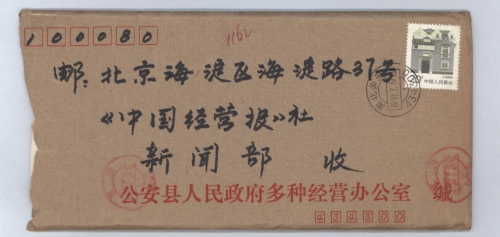 100080
1162
邮：北京海淀区海淀路31号
《中国经营报》社
新闻部 收
公安县人民政府多种经营办公室 缄
434300
中国人民邮政